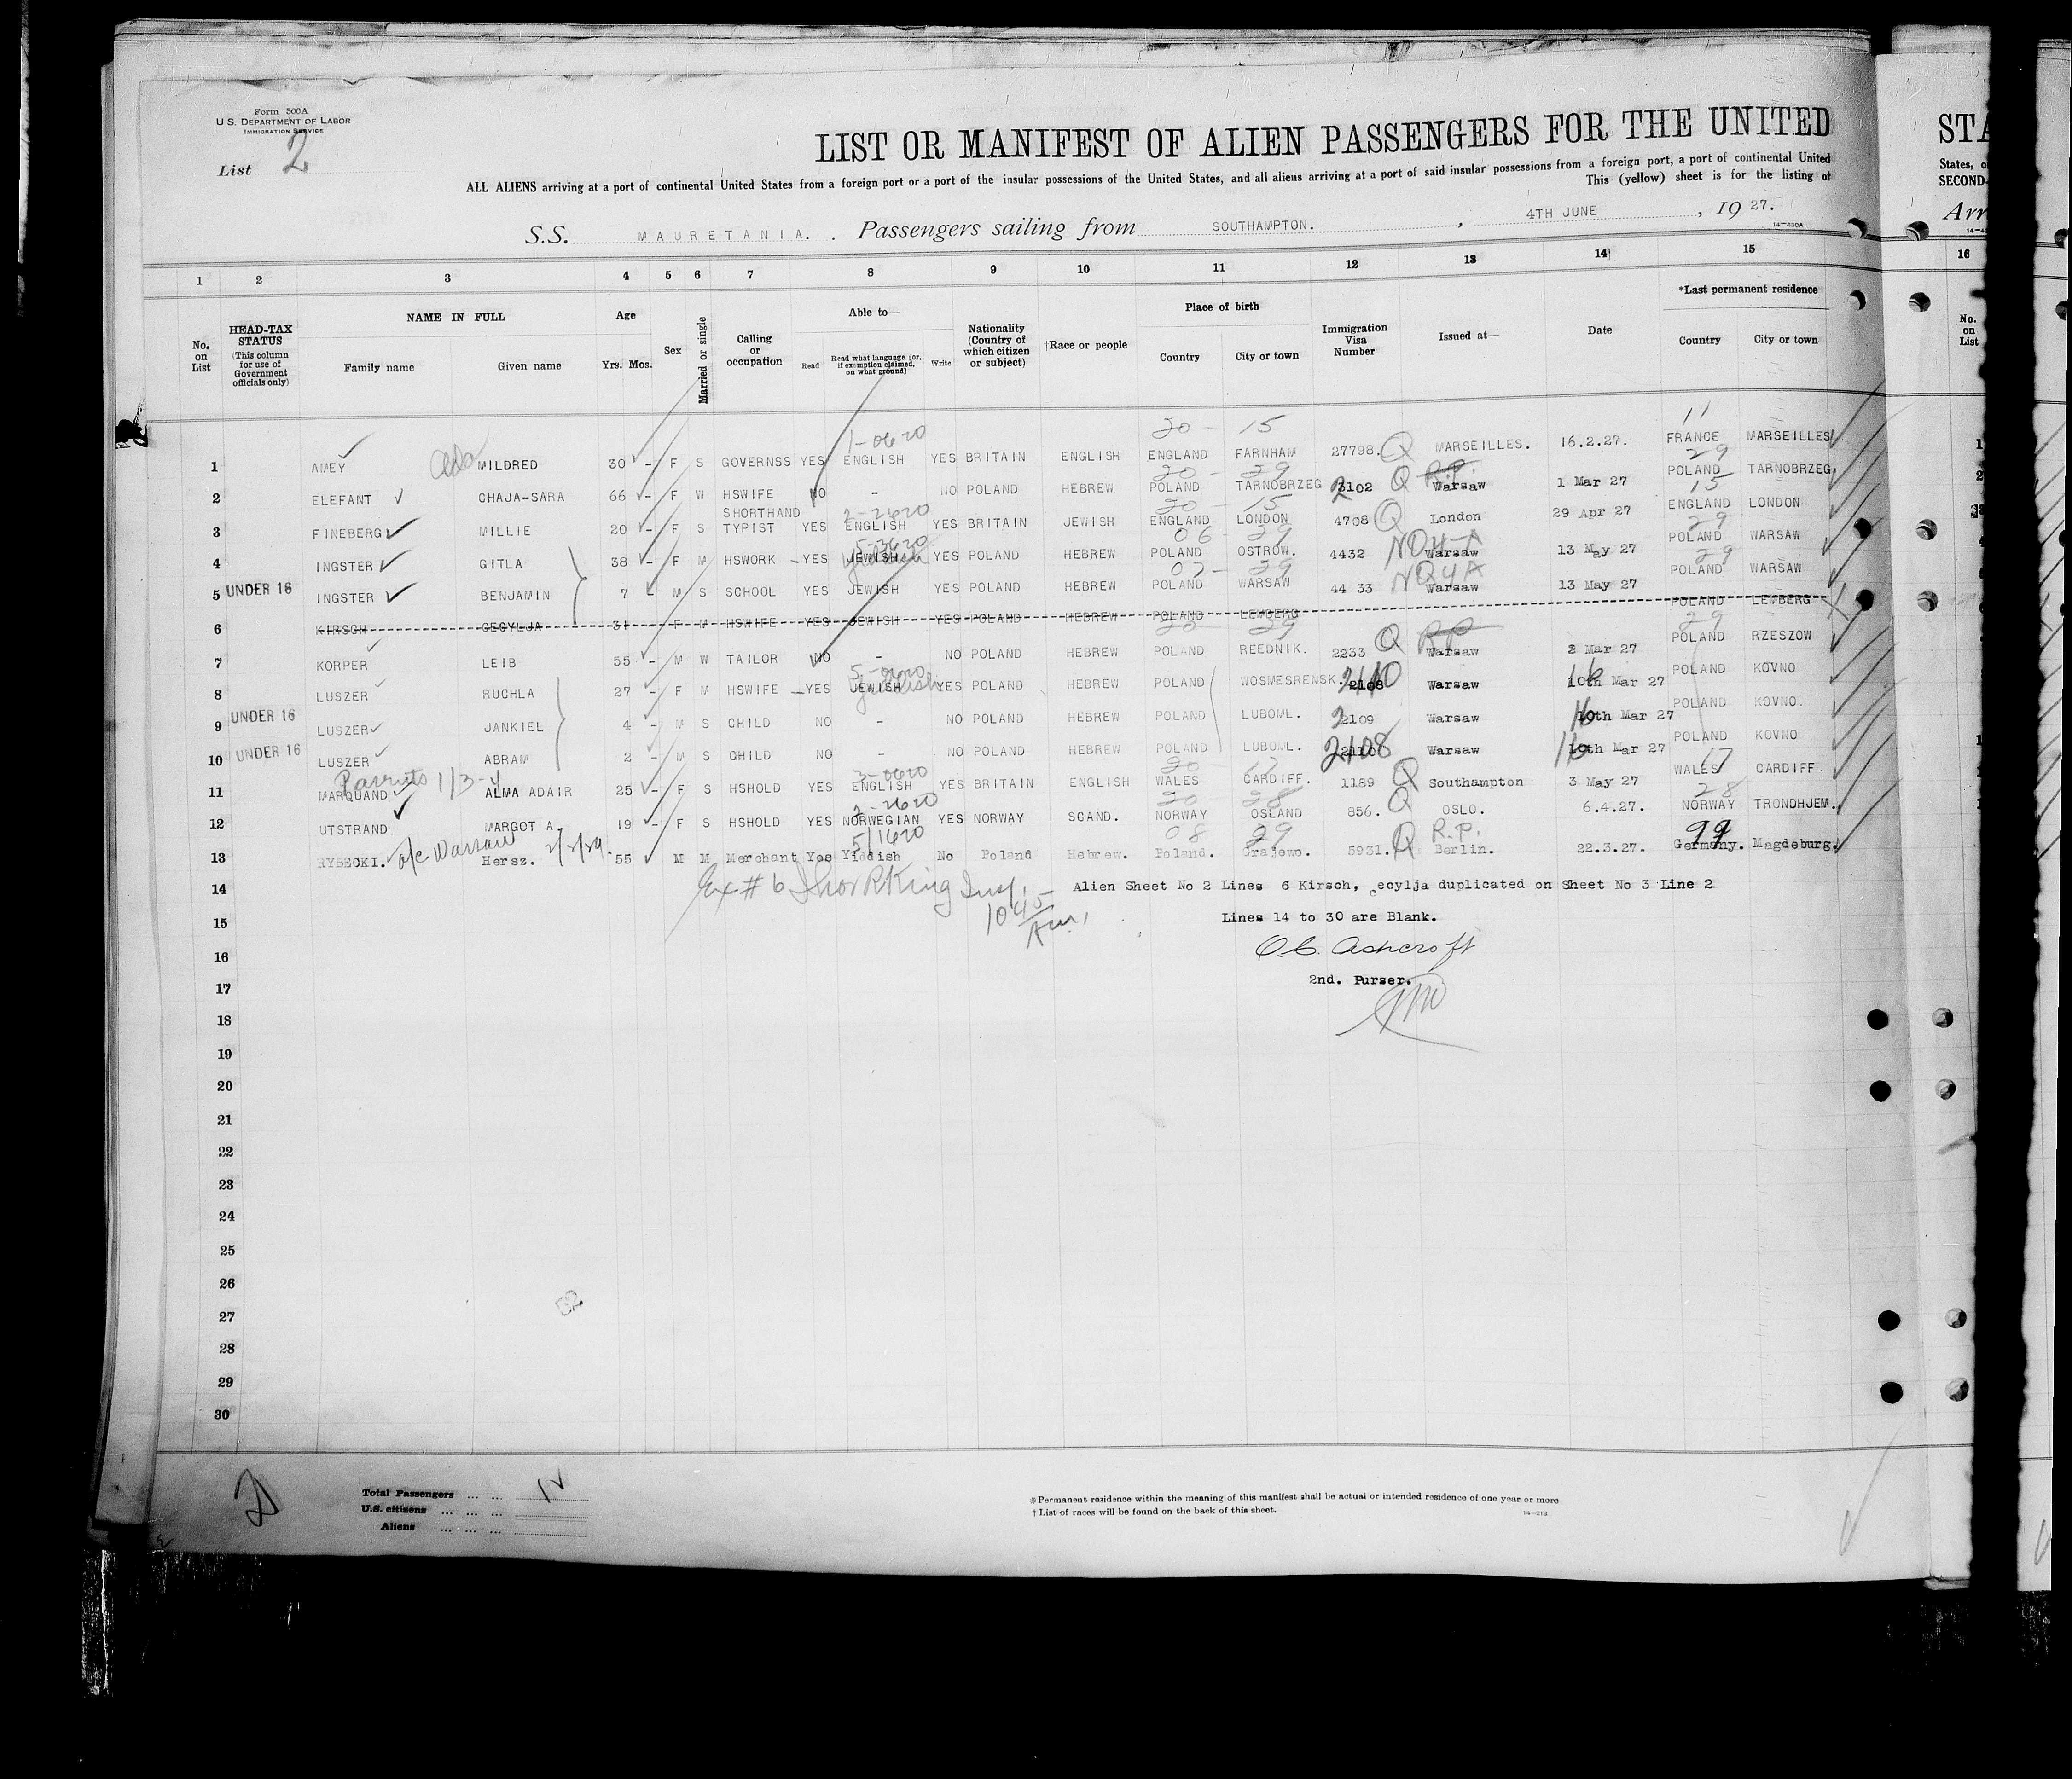 Form 500A
U. S. DEPARTMENT OF LABOR
IMMIGRATION SERVICE
List 2
LIST OR MANIFEST OF ALIEN PASSENGERS FOR THE UNITED
STA
ALL ALIENS arriving at a port of continental United States from a foreign port or a port of the insular possessions of the United States, and all aliens arriving at a port of said insular possessions from a foreign port, a port of continental United
States, o
This (yellow) sheet is for the listing of
SECOND-
S.S. MAURETANIA. Passengers sailing from SOUTHAMPTON. , 4TH JUNE , 19 27.
Arr
14—430A
1 2 3 4 5 6 7 8 9 10 11 12 13 14 15 16
No. on List
HEAD-TAX STATUS (This column for use of Government officials only)
NAME IN FULL
Family name Given name
Age
Yrs. Mos.
Sex
Married or single
Calling or occupation
Able to—
Read
Read what language (or, if exemption claimed, on what ground)
Write
Nationality (Country of which citizen or subject)
†Race or people
Place of birth
Country City or town
Immigration Visa Number
Issued at—
Date
*Last permanent residence
Country City or town
No. on List
1-0620 20 - 15 11
1 AMEY MILDRED 30 - F S GOVERNSS YES ENGLISH YES BRITAIN ENGLISH ENGLAND FARNHAM 27798. Q MARSEILLES. 16.2.27. FRANCE MARSEILLES
20 - 29 R.P. 29
2 ELEFANT CHAJA-SARA 66 - F W HSWIFE NO - NO POLAND HEBREW POLAND TARNOBRZEG 3102 Q Warsaw 1 Mar 27 POLAND TARNOBRZEG
2-2620 20 - 15 15
3 FINEBERG MILLIE 20 - F S SHORTHAND TYPIST YES ENGLISH YES BRITAIN JEWISH ENGLAND LONDON 4708 Q London 29 Apr 27 ENGLAND LONDON
06 - 29 29
4 INGSTER GITLA 38 - F M HSWORK - YES JEWISH YES POLAND HEBREW POLAND OSTROW. 4432 NQ4-A Warsaw 13 May 27 POLAND WARSAW
07 - 29 29
5 UNDER 16 INGSTER BENJAMIN 7 - M S SCHOOL YES JEWISH YES POLAND HEBREW POLAND WARSAW 44 33 NQ4A Warsaw 13 May 27 POLAND WARSAW
6 KIRSCH CECYLJA 31 F M HSWIFE YES JEWISH YES POLAND HEBREW POLAND LEMBERG POLAND LEMBERG
20 29 R.P. 29
7 KORPER LEIB 55 - M W TAILOR NO - NO POLAND HEBREW POLAND REEDNIK. 2233 Q Warsaw 2 Mar 27 POLAND RZESZOW
8 LUSZER RUCHLA 27 - F M HSWIFE - YES JEWISH YES POLAND HEBREW POLAND WOSMESRENSK. 2108 2110 Warsaw 10th 16 Mar 27 POLAND KOVNO
9 UNDER 16 LUSZER JANKIEL 4 - M S CHILD NO - NO POLAND HEBREW POLAND LUBOML. 2109 Warsaw 10th 16 Mar 27 POLAND KOVNO.
10 UNDER 16 LUSZER ABRAM 2 - M S CHILD NO - NO POLAND HEBREW POLAND LUBOML. 2108 Warsaw 10th 16 Mar 27 POLAND KOVNO
3-0620 20 17 17
11 MARQUAND ALMA ADAIR 25 - F S HSHOLD YES ENGLISH YES BRITAIN ENGLISH WALES CARDIFF. 1189 Q Southampton 3 May 27 WALES CARDIFF.
2-2620 20 28 28
12 UTSTRAND MARGOT A. 19 - F S HSHOLD YES NORWEGIAN YES NORWAY SCAND. NORWAY OSLAND 856. Q OSLO. 6.4.27. NORWAY TRONDHJEM.
5/1620 08 29 R.P. 99
13 RYBECKI. a/c Warsaw Hersz. 55 M M Merchant Yes Yiddish No Poland Hebrew. Poland. Grajewo. 5931. Q Berlin. 22.3.27. Germany. Magdeburg.
14 Ex # 6 Insp. Alien Sheet No 2 Lines 6 Kirsch, cecylja duplicated on Sheet No 3 Line 2
1045 Am.
15 Lines 14 to 30 are Blank.
16 O.C. Ashcroft
17 2nd. Purser.
18
19
20
21
22
23
24
25
26
27
28
29
30
Total Passengers ... ... 12
U.S. citizens ... ... ...
Aliens ... ... ...
*Permanent residence within the meaning of this manifest shall be actual or intended residence of one year or more
†List of races will be found on the back of this sheet.
14—212